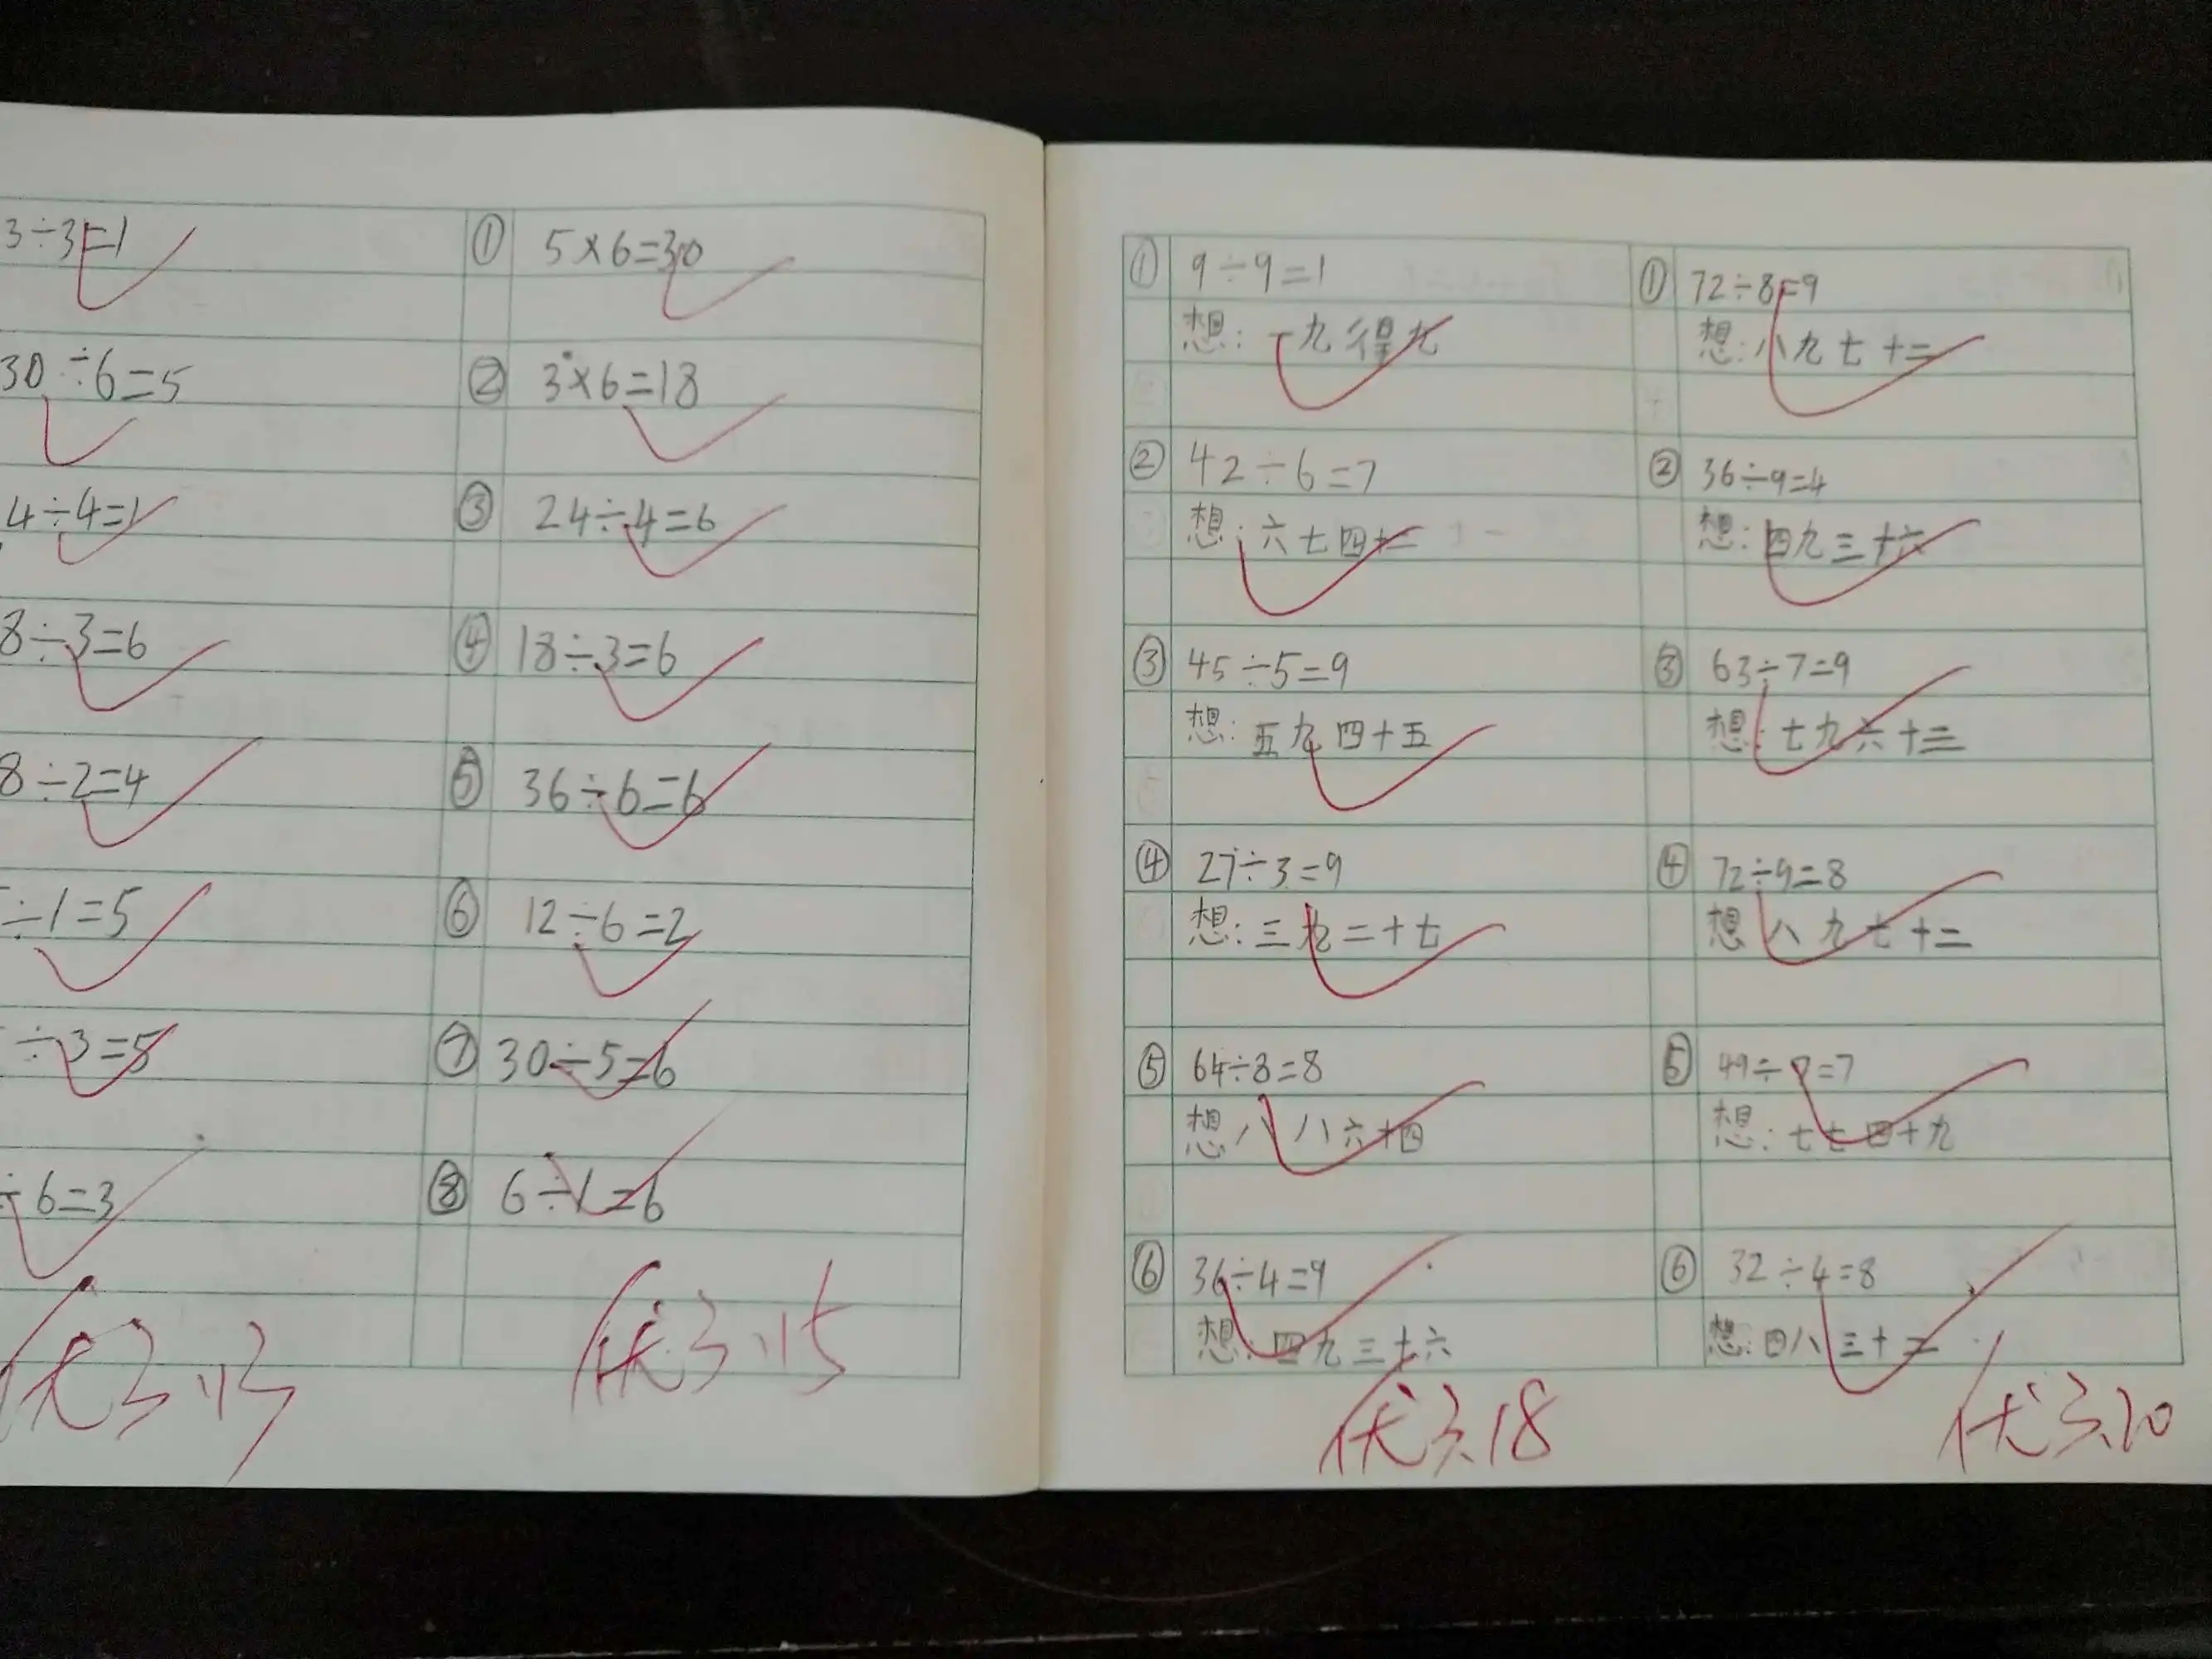 3÷3=1
30÷6=5
4÷4=1
8÷3=6
8÷2=4
÷1=5
÷3=5
÷6=3
优3.13
① 5×6=30
② 3×6=18
③ 24÷4=6
④ 18÷3=6
⑤ 36÷6=6
⑥ 12÷6=2
⑦ 30÷5=6
⑧ 6÷1=6
优3.15
① 9÷9=1
想:一九得九
② 42÷6=7
想:六七四十二
③ 45÷5=9
想:五九四十五
④ 27÷3=9
想:三九二十七
⑤ 64÷8=8
想八八六十四
⑥ 36÷4=9
想:四九三十六
优3.18
① 72÷8=9
想:八九七十二
② 36÷9=4
想:四九三十六
③ 63÷7=9
想:七九六十三
④ 72÷9=8
想八九七十二
⑤ 49÷7=7
想:七七四十九
⑥ 32÷4=8
想:四八三十二
优3.20